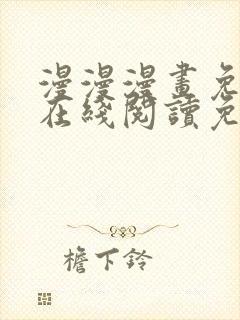 漫漫漫畫免
在綫閱讀免
檐下鈴